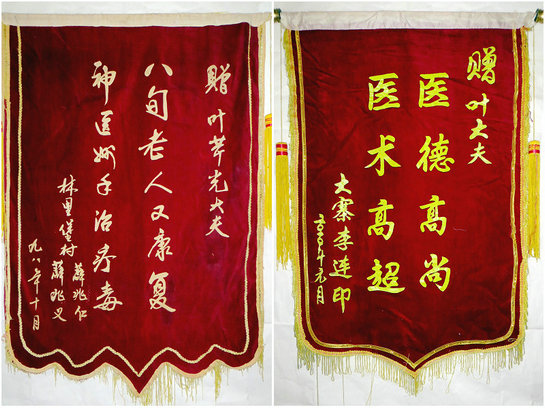 赠叶荠光大夫
八旬老人又康复
神医妙手治疗毒
林里堡村
薛兆仁
薛兆义
九八年十月
赠叶大夫
医德高尚
医术高超
大寨李连印
二〇〇〇年元月